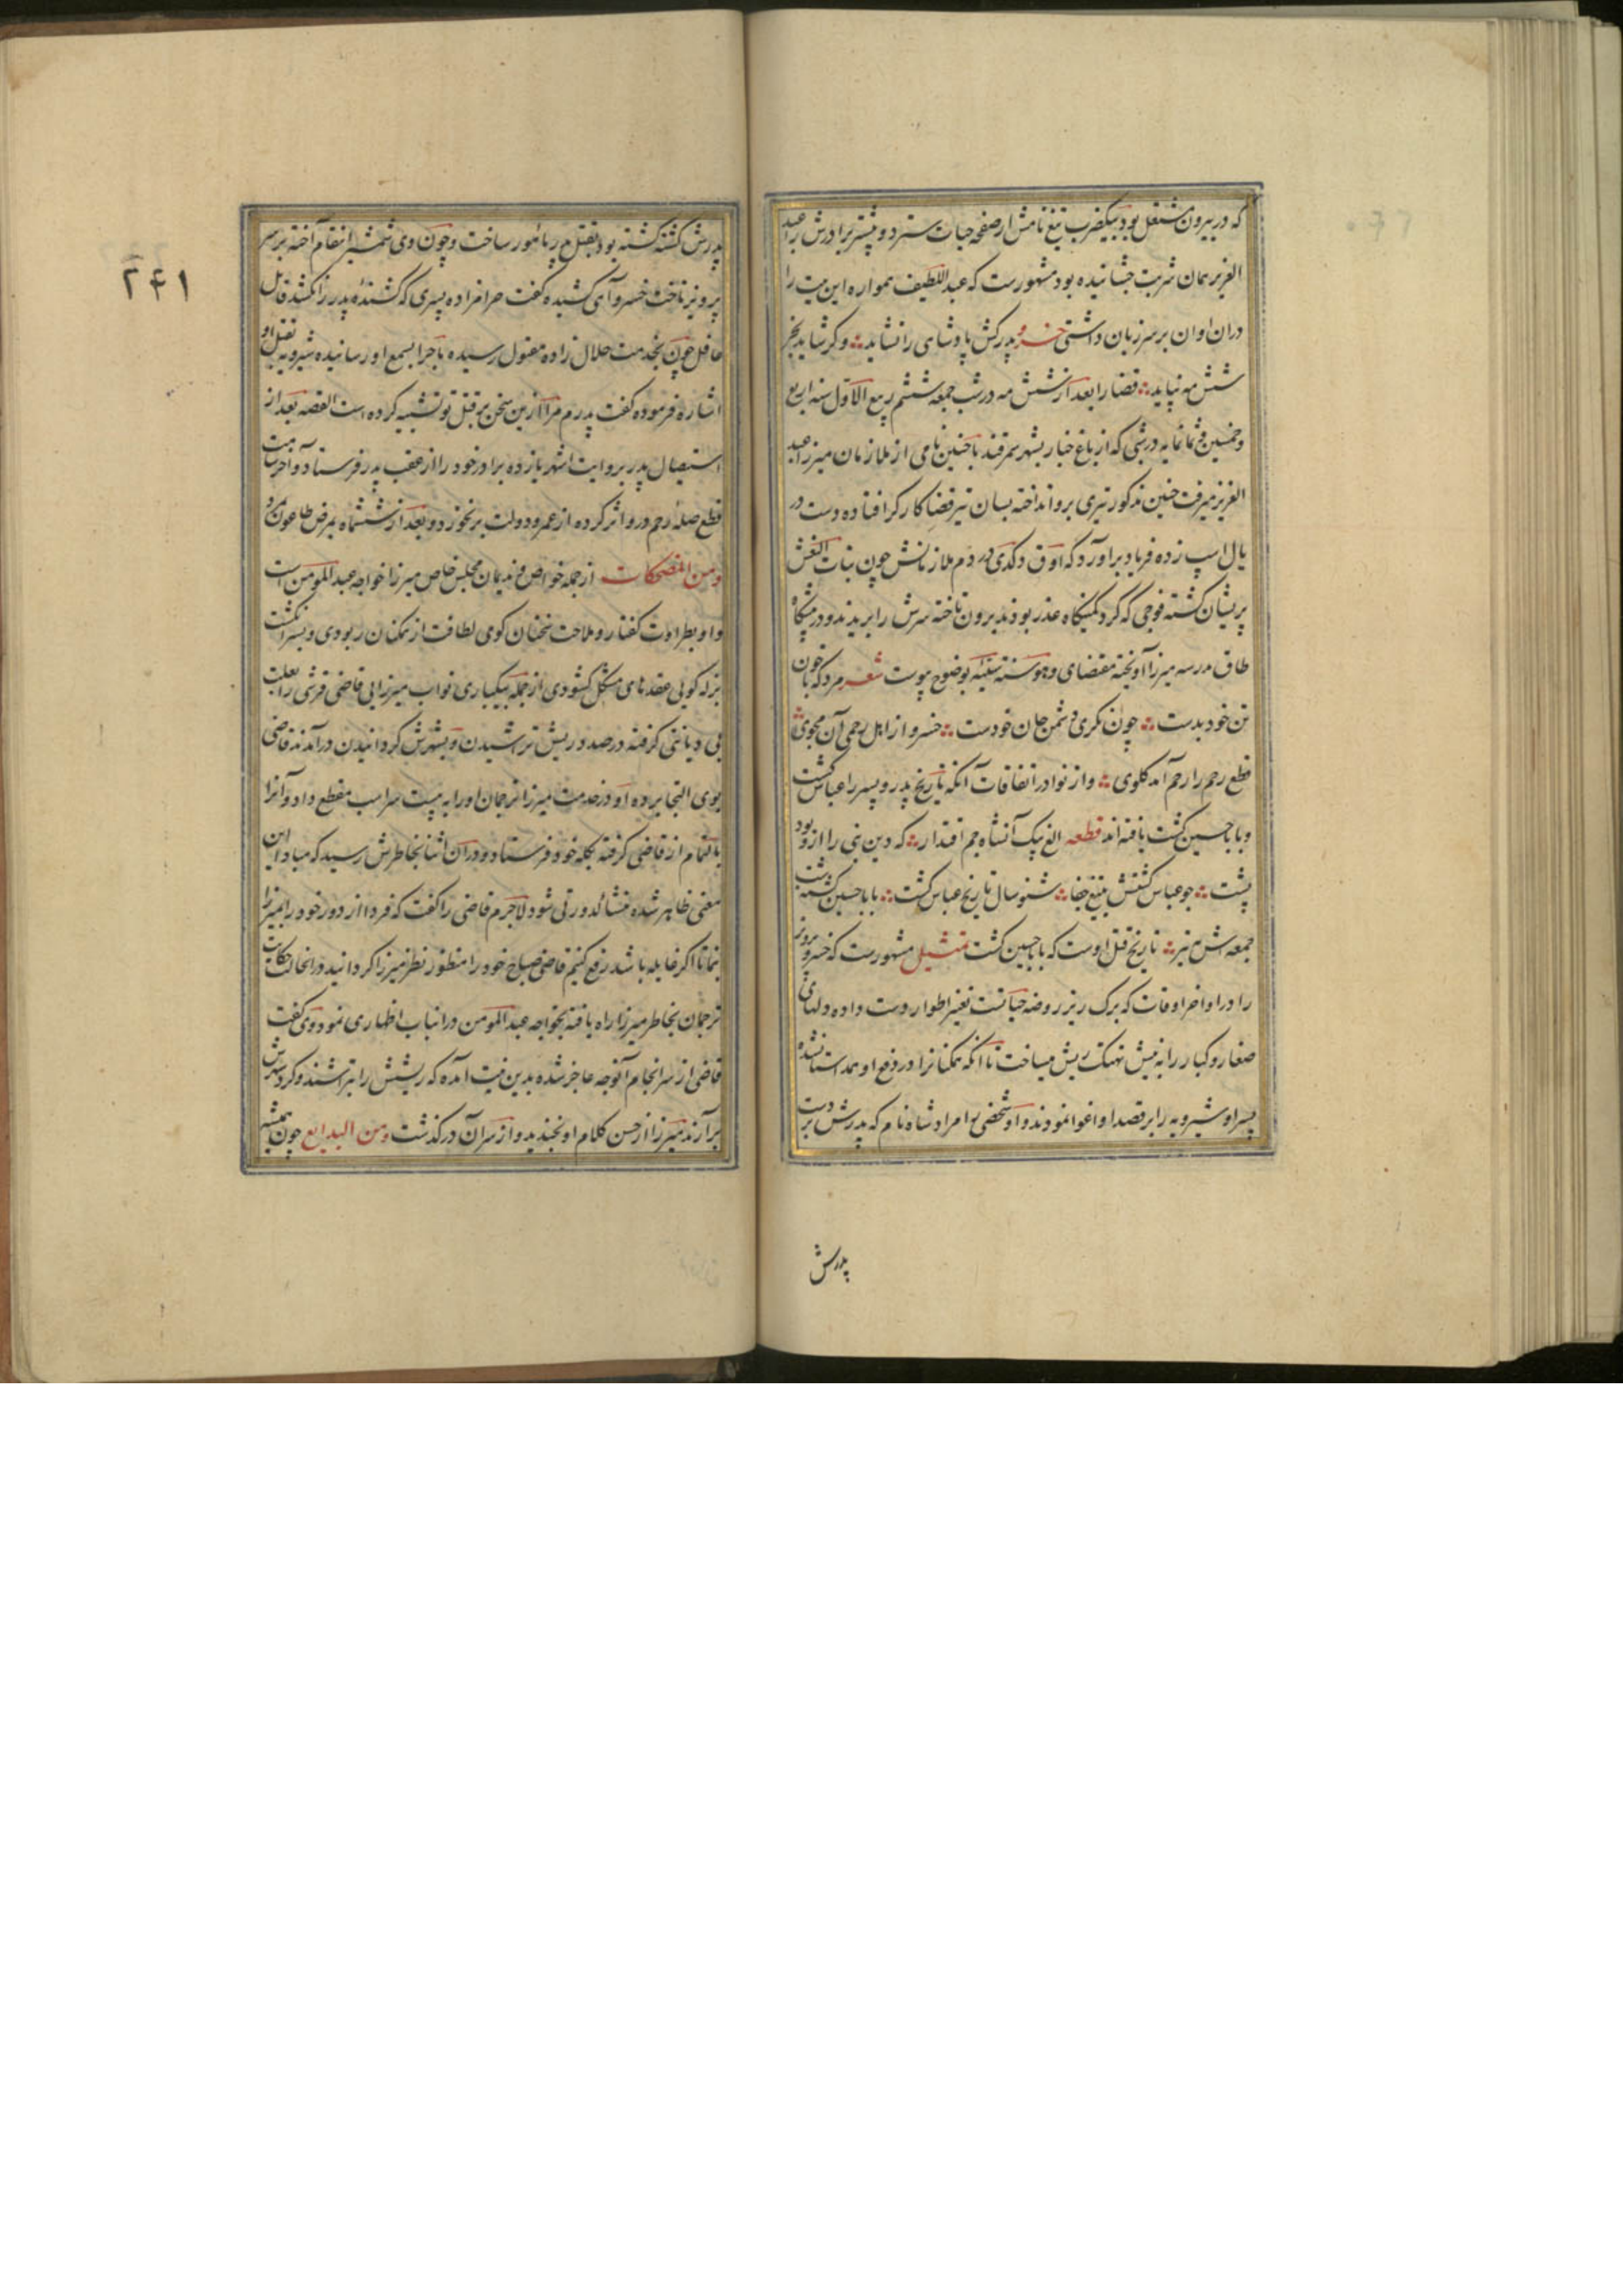 که در بیرون مشتغل بود بیکضرب تیغ نامش از صفحه حیات سترد و پیشتر برادرش را عبد
العزیز همان شربت چشانیده بود مشهورست که عبد اللطیف همواره این بیت را
دران اوان بر سر زبان داشتی خسرو پدرکش پادشاهی را نشاید ؞ وگر شاید بجز
شش مه نپاید ؞ قضا را بعد از شش مه در شب جمعه ششم ربیع الاول سنه اربع
و خمسین و ثمانمایه در شبی که از باغ خیار بشهر سمرقند با چنین نامی از ملازمان میرزا عبد
العزیز میرفت مذکور تیری برو انداخته بسان تیر قضا کارگر افتاده دست در
یال اسپ زده فریاد براورد که اوق دکدی در دم ملازمانش چون بنات النعش
پریشان کشته فوجی که کرد کمینکاه عذر بودند بیرون تاخته سرش را بریدند و در پیشگاه
طاق مدرسه میرزا آویخته مقتضای وهو سنة سیئه بوضوح پیوست شعر مرد که با خون
تن خود بدست ؞ چون نکری دشمن جان خودست ؞ خسرو از اهل رحمی آن مجوی ؞
قطع رحم را رحم آمد کلوی ؞ و از نوادر اتفاقات آنکه تاریخ پدر و پسر را عباس کشت
و بابا حسین کشت یافته اند قطعه الغ بیک آنشاه جم اقتدار ؞ که دین نبی را ازو بود
پشت ؞ چو عباس کشتش بتیغ جفا ؞ شنو سال تاریخ عباس کشت ؞ بابا حسین کشت شب
جمعه اش بتیر ؞ تاریخ قتل اوست که بابا حسین کشت تمثیل مشهورست که خسرو پرویز
را در اواخر اوقات که برک ریز روضه حیاتست تغییر اطوار دست داده دلهای
صغار و کبار را به نیش تهتک ریش میساخت تا آنکه همکنانرا در دفع او همداستان شده
پسر او شیرویه را بر قصد او اغوا نمودند و او شخصی را مرادشاه نام که پدرش بر دست
پدرش
۲۴۱
پدرش کشته کشته بود بقتل پدر مامور ساخت و چون وی شمشیر انتقام آخته بر سر
پرویز تاخت خسرو آهی کشیده گفت حرامزاده پسری که کشندهٔ پدر را نکشد قاتل
غافل چون بخدمت حلال زاده مقتول رسیده ماجرا بسمع او رسانیده شیرویه بقتل او
اشاره فرموده گفت پدرم مرا ازین سخن بر قتل تو تنبیه کرده است القصه بعد از
استیصال پدر بروایت اشهر یازده برادر خود را از عقب پدر فرستاد و آخر شامت
قطع صلهٔ رحم درو اثر کرده از عمر و دولت بر نخورد و بعد از ششماه بمرض طاعون مرد
و من المضحکات از جمله خواص و ندیمان مجلس خاص میرزا خواجه عبد المومن است
و او بطراوت کفتار و ملاحت سخنان گوی لطافت از همکنان ربودی و بسرانگشت
بذله گویی عقدهای مشکل کشودی از جمله بیکباری نواب میرزایی قاضی قرشی را بعلت
بی دیانتی گرفته در صدد ریش تراشیدن و بشهرش کردانیدن درآمدند قاضی
بوی التجا برده او در خدمت میرزا ترجمان او را به بیست سر اسب مقطع داد و آنرا
بالتمام از قاضی گرفته بگله خود فرستاد و دران اثنا بخاطرش رسید که مبادا این
معنی ظاهر شده منشا کدورتی شود لاجرم قاضی را گفت که فردا از دور خود را بمیرزا
نما تا اگر غایله باشد رفع کنیم قاضی صباح خود را منظور نظر میرزا کردانید در انحالت حکایت
ترجمان بخاطر میرزا راه یافته بخواجه عبد المومن در انباب اظهاری نمود وی گفت
قاضی از سرانجام آنوجه عاجز شده بدین نیت آمده که ریشش را بتراشند و کرد شهرش
برآرند میرزا از حسن کلام او بخندید و از سر آن درگذشت و من البدایع چون همیشه